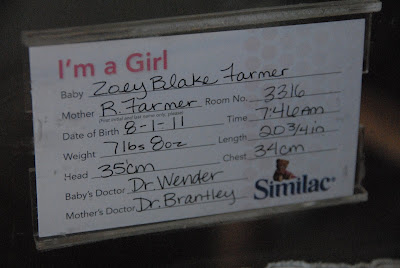 I'm a Girl
Baby Zoey Blake Farmer
Mother R. Farmer Room No. 3316
Date of Birth 8-1-11 Time 7:46am
Weight 7lbs 8oz Length 20 3/4 in
Head 35cm Chest 34cm
Baby's Doctor Dr. Wender
Mother's Doctor Dr. Brantley
Similac